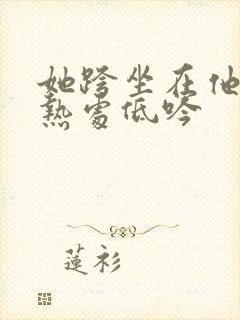 她跨坐在他
熱處低吟
蓮衫